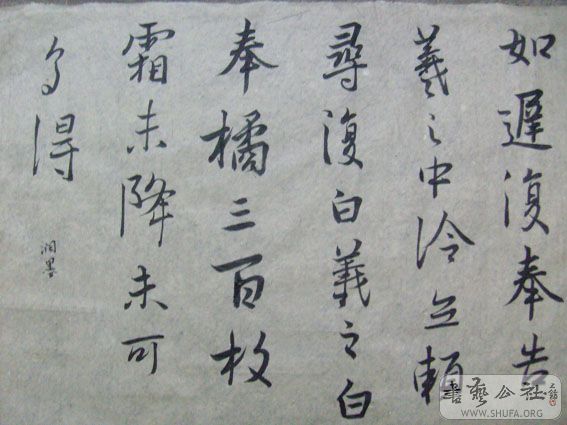 如遲復奉告
羲之中冷無賴
尋復白羲之白
奉橘三百枚
霜未降未可
多得
润墨
書藝公社
WWW.SHUFA.ORG